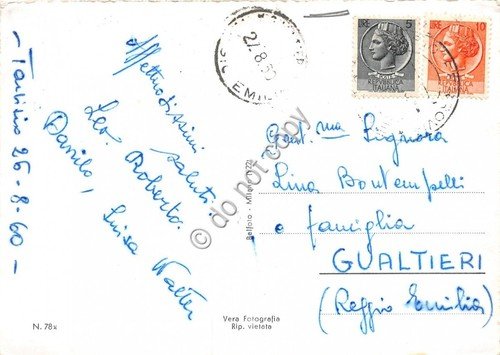 Tarvisio 26-8-60 —
Affettuosissimi
saluti.
Leo. Roberto.
Danilo, Luisa Walter
27.8.60
EMILIA
LIRE 5
LIRE 10
ITALIANA
ITALIANA
Gent.ma Signora
Lina Bontempelli
e famiglia
GUALTIERI
(Reggio Emilia)
do not copy
Belfoto - Milano
N. 78x
Vera Fotografia
Rip. vietata